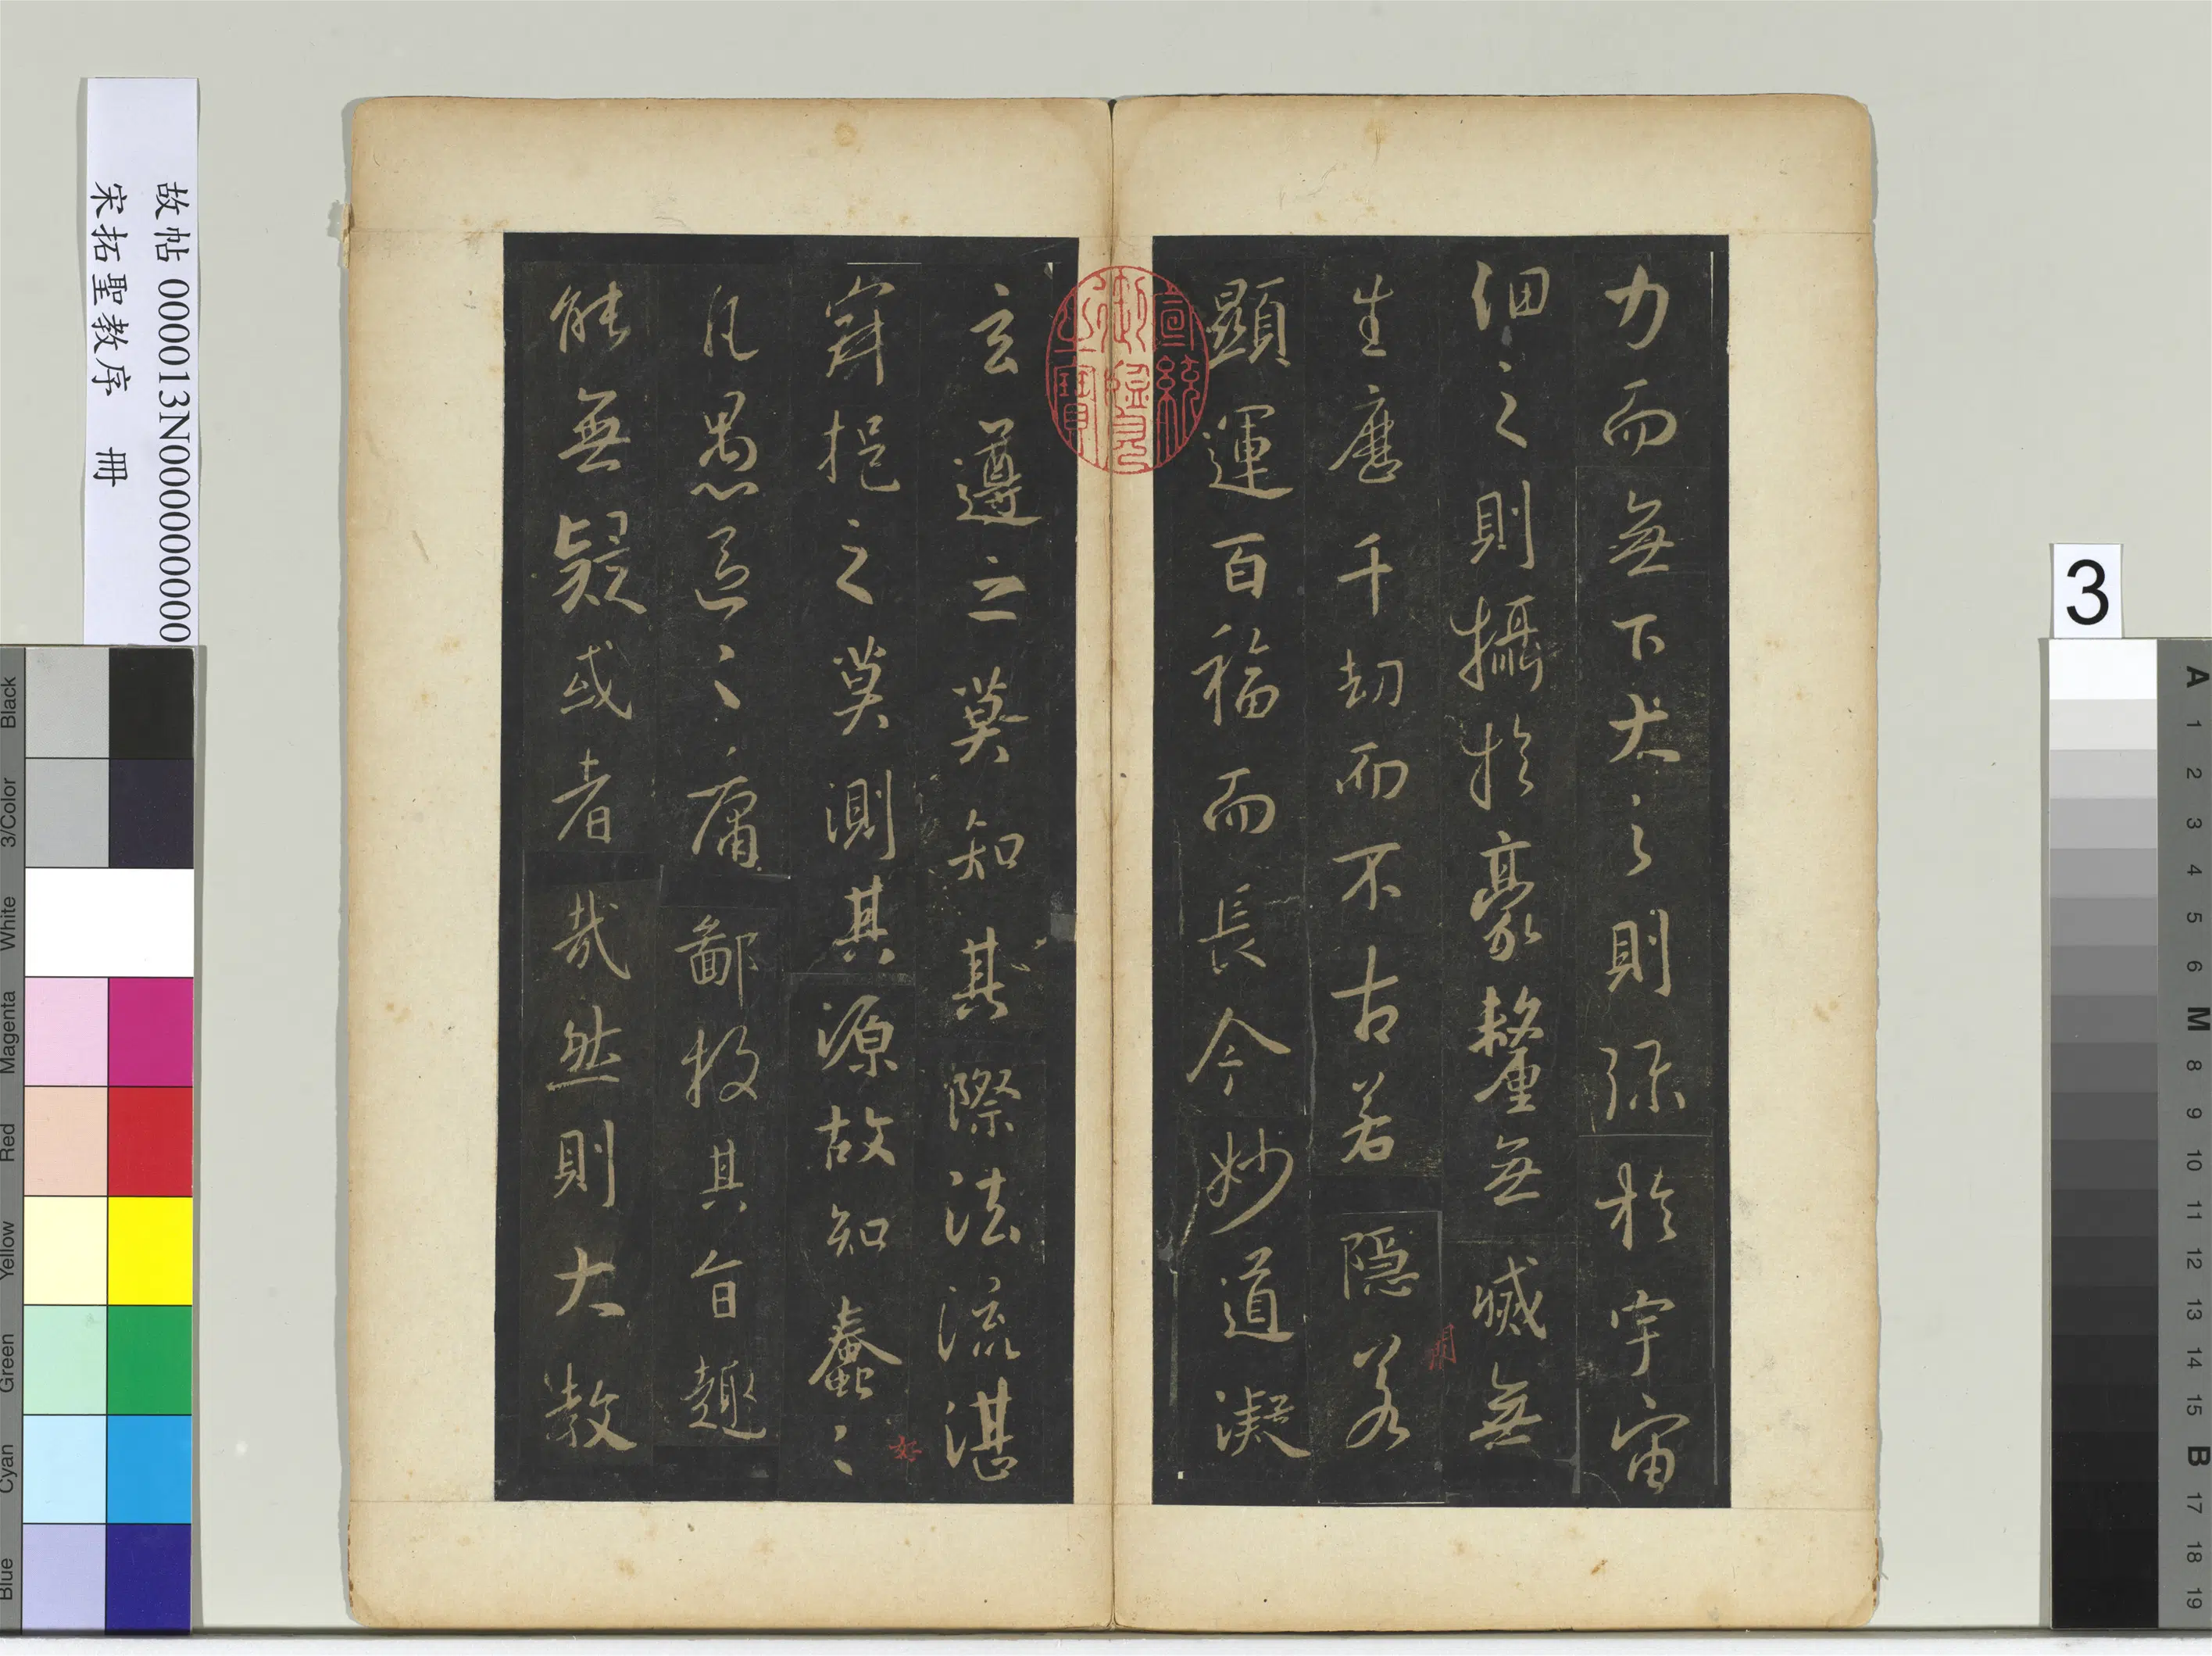 力而無下大之則弥於宇宙
細之則攝於豪釐無滅無
生歷千劫而不古若隱若
顯運百福而長今妙道凝
玄遵之莫知其際法流湛
寂挹之莫測其源故知蠢〻
凡愚區〻庸鄙投其旨趣
能無疑或者哉然則大教
宣統御覽之寶
故帖 000013N000000000
宋拓聖教序 冊
3
Black
3/Color
White
Magenta
Red
Yellow
Green
Cyan
Blue
A 1 2 3 4 5 6 M 8 9 10 11 12 13 14 15 B 17 18 19